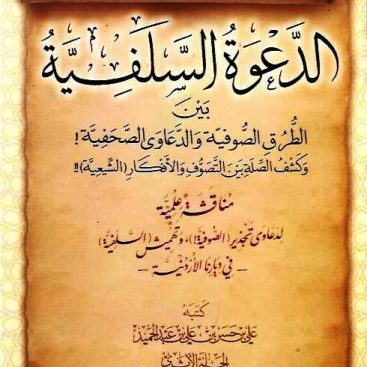 الدَّعْوَةُ السَّلَفِيَّةُ
بَيْنَ
الطُّرُقِ الصُّوفِيَّةِ وَالدَّعَاوَى الصَّحَفِيَّةِ!
وَكَشْفُ الصِّلَةِ بَيْنَ التَّصَوُّفِ وَالأَفْكَارِ (الشِّيعِيَّةِ)!!
مُنَاقَشَةٌ عِلْمِيَّةٌ
لدعاوى تجذير (الصُّوفيَّة!)، وتهميش (السَّلفيَّة)
- في ديارنا الأردنيَّة -
كتبه
علي بن حسن بن علي بن عبد الحميد
الحلبي الأثري